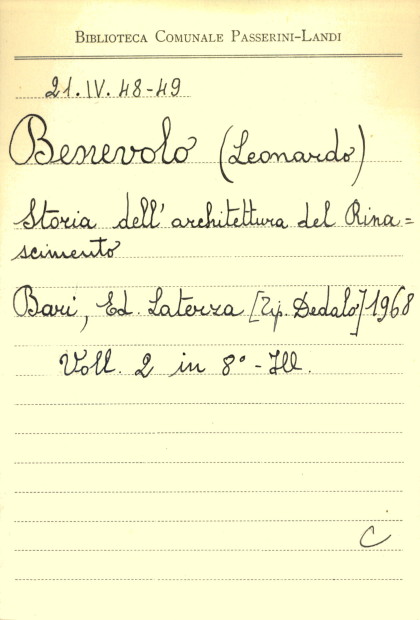 BIBLIOTECA COMUNALE PASSERINI-LANDI
21.IV.48-49
Benevolo (Leonardo)
Storia dell'architettura del Rina=
scimento
Bari, Ed. Laterza [Tip. Dedalo] 1968
Voll. 2 in 8° - Ill.
C